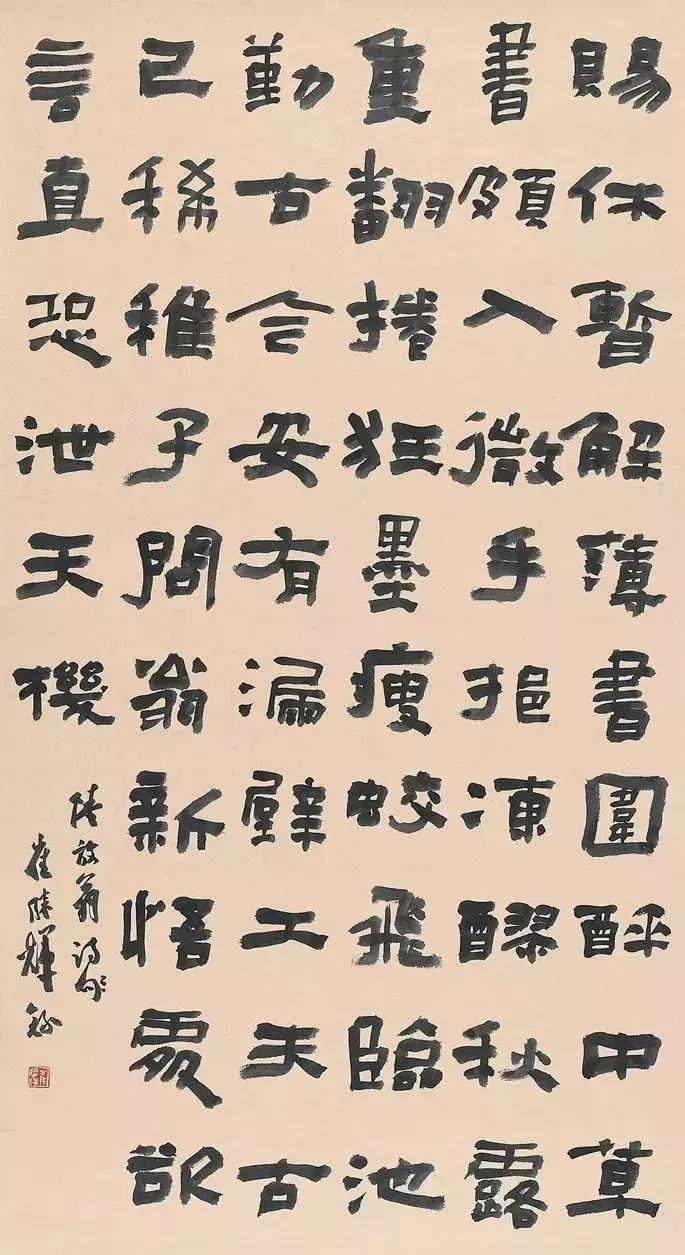 賜休暫解薄書圍醉中草
書頗入微手挹凍醪秋露
重翻捲狂墨瘦蛟飛臨池
勤古今安有漏壁工夫古
已稀稚子問翁新悟處欲
言直恐泄天機
陸放翁詩句
崔勝輝錄